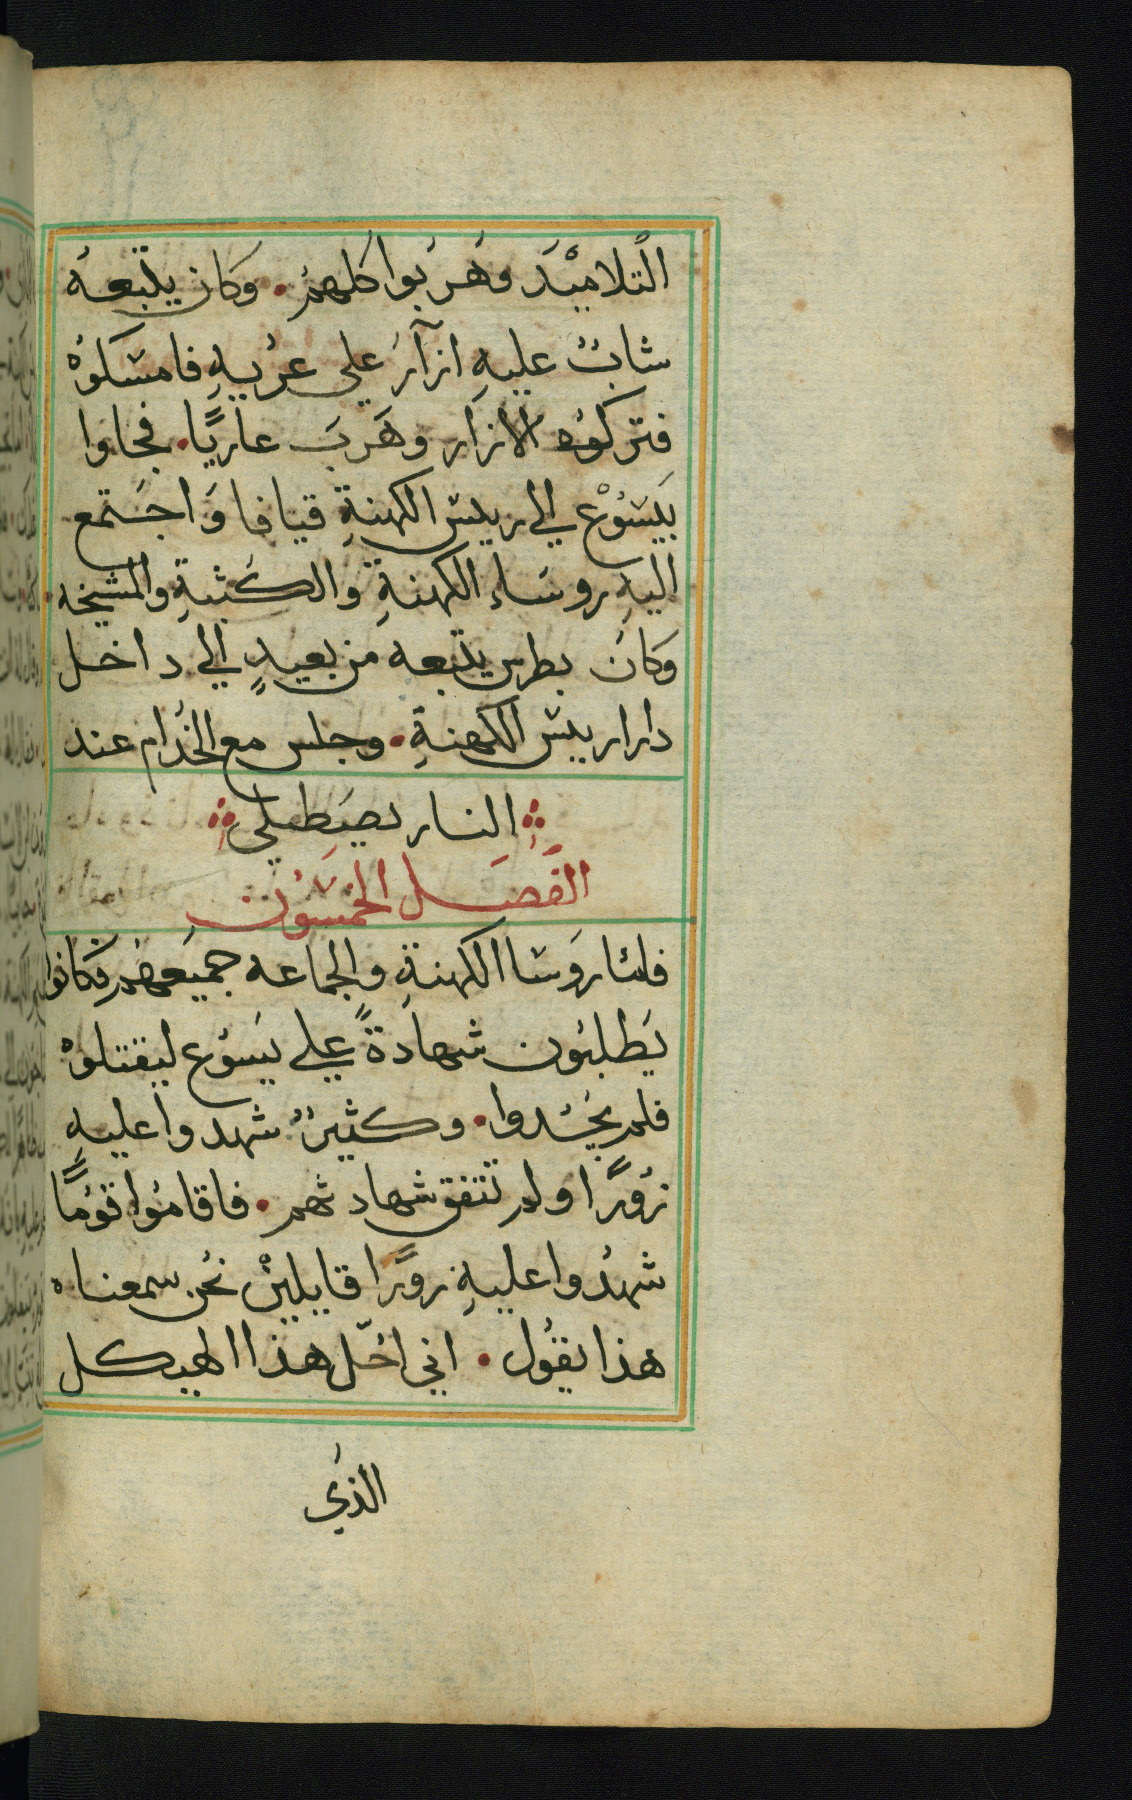 التلاميد وهربوا كلهم. وكان يتبعه
شاب عليه ازآر علي عريه فامسكوه
فترك الازار وهرب عاريا. فجاوا
بيسوع الي رييس الكهنة قيافا واجتمع
اليه روساء الكهنة والكتبة والمشيخه.
وكان بطرس يتبعه من بعيد الي داخل
دار ارييس الكهنة. وجلس مع الخدام عند
النار يصطلي
الفصل الخمسون
فلما روسا الكهنة والجماعه جميعهم فكانوا
يطلبون شهادة علي يسوع ليقتلوه
فلم يجدوا. وكثير شهدوا عليه
زورا ولم تتفق شهادتهم. فاقاموا قوما
شهدوا عليه زورا قايلين نحن سمعناه
هذا يقول. اني احل هذا الهيكل
الذي